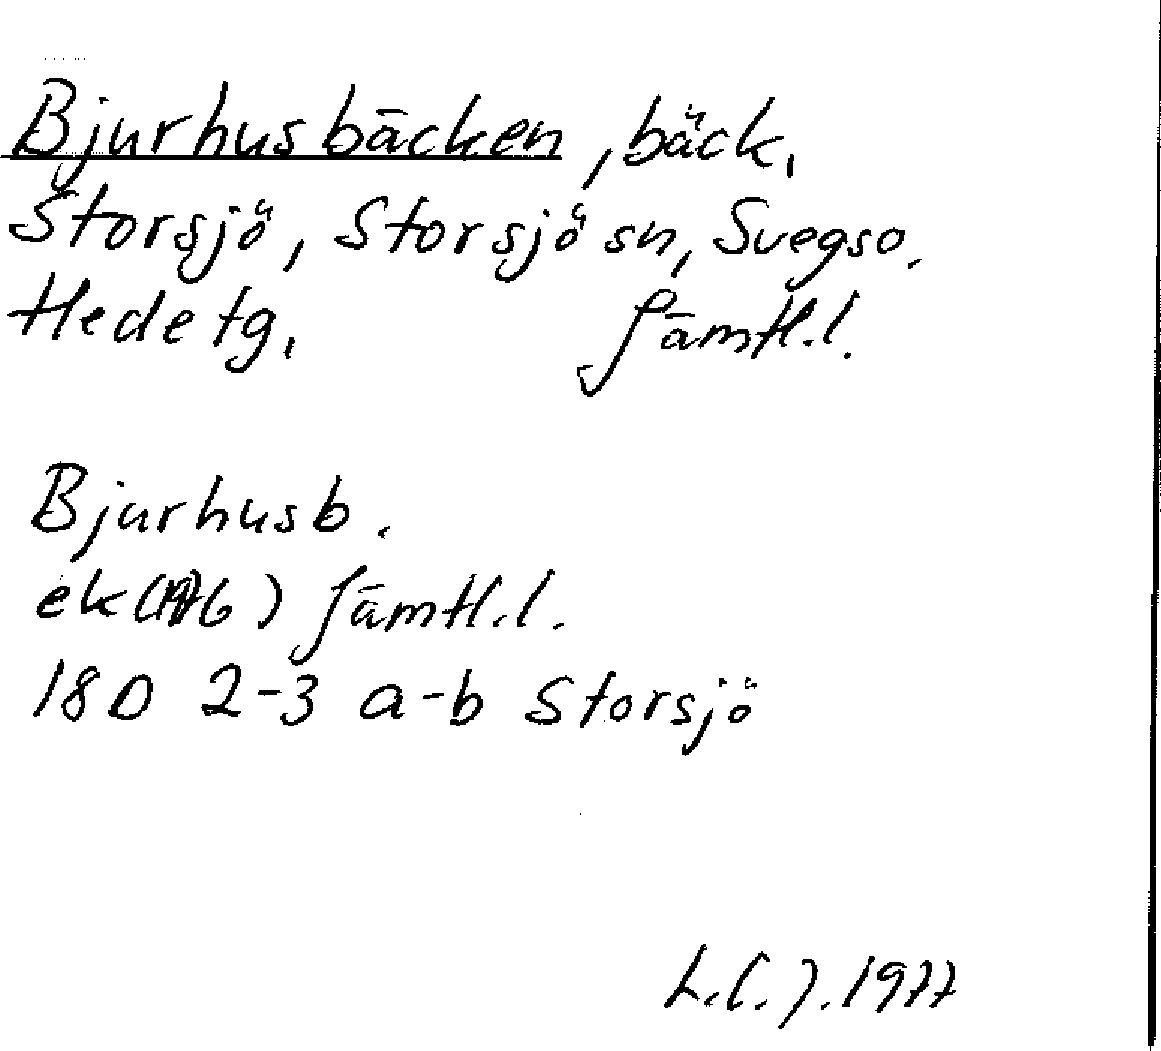 Bjurhusbäcken, bäck,
Storsjö, Storsjö sn, Svegs o.
Hede tg, Jämtl.l.
Bjurhusb.
ek (1976) Jämtl.l.
18D 2-3 a-b Storsjö
L.C.J. 1977